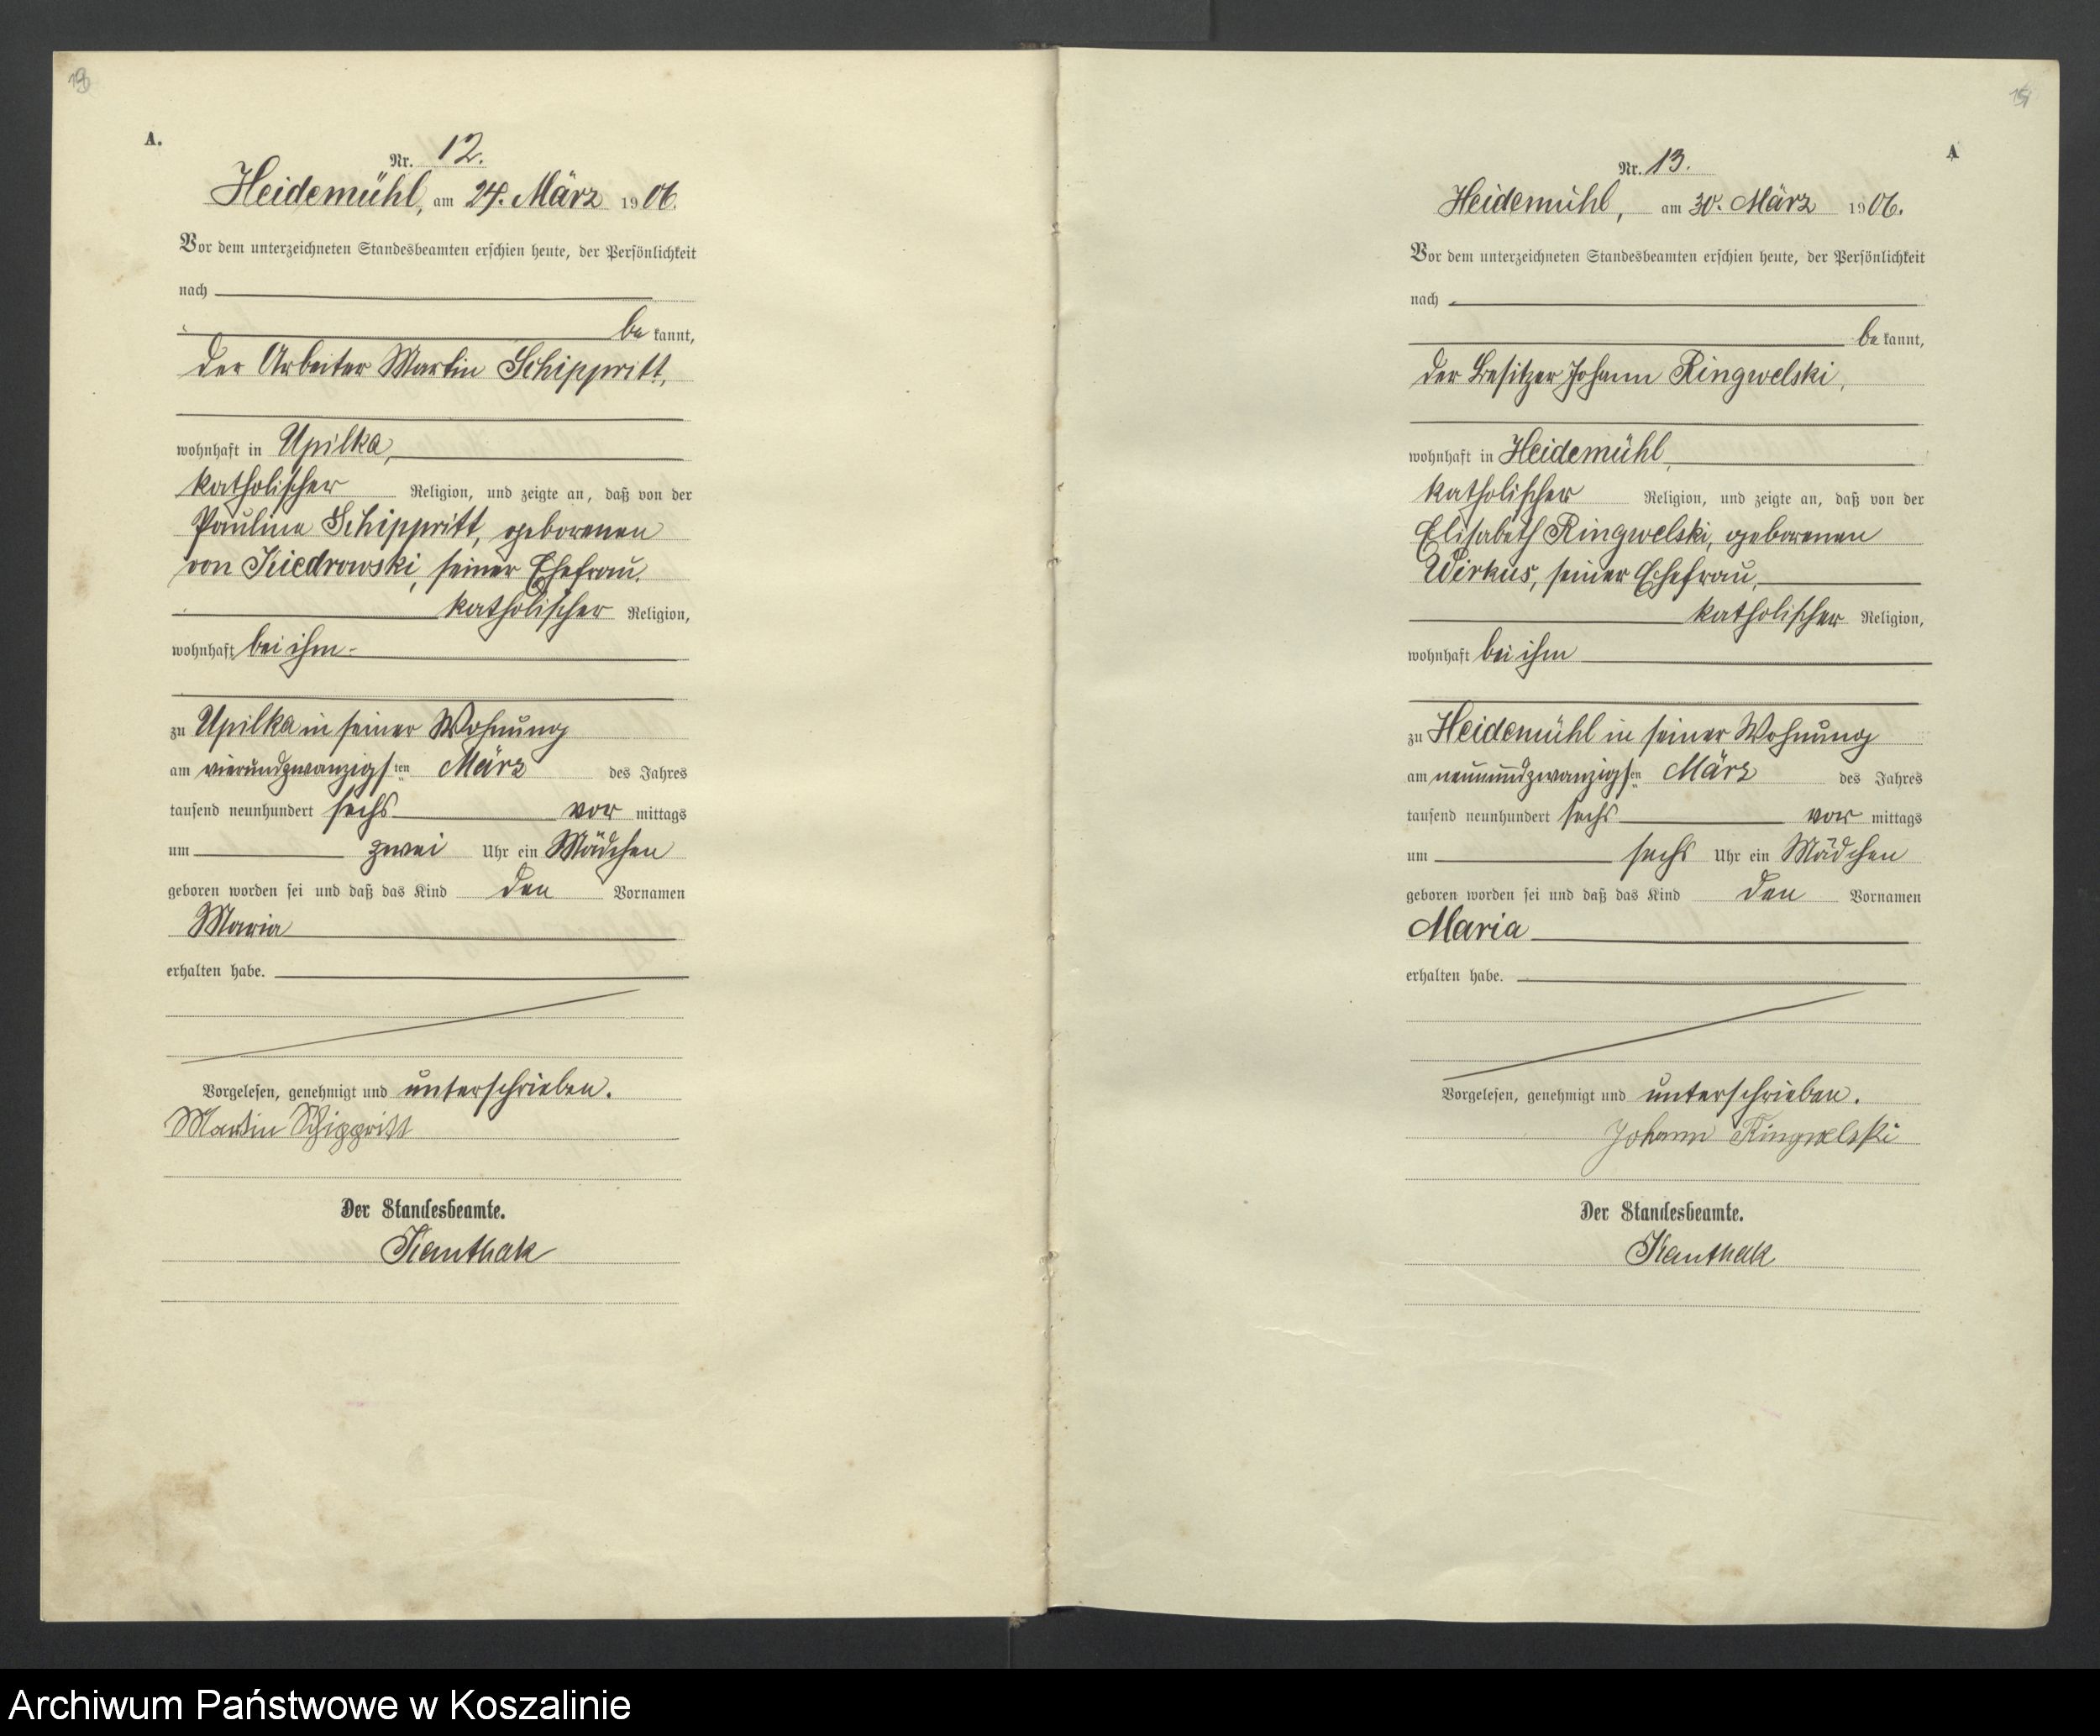 A.
Nr. 12.
Heidemühl, am 24. März 1906.
Vor dem unterzeichneten Standesbeamten erschien heute, der Persönlichkeit
nach
be kannt,
der Arbeiter Martin Schippritt,
wohnhaft in Upilka,
katholischer Religion, und zeigte an, daß von der
Pauline Schippritt, geborenen
von Kiedrowski, seiner Ehefrau,
katholischer Religion,
wohnhaft bei ihm
zu Upilka in seiner Wohnung
am vierundzwanzigsten März des Jahres
tausend neunhundert sechs vor mittags
um zwei Uhr ein Mädchen
geboren worden sei und daß das Kind den Vornamen
Maria
erhalten habe.
Vorgelesen, genehmigt und unterschrieben.
Martin Schippritt
Der Standesbeamte.
Kanthak
A
Nr. 13.
Heidemühl, am 30. März 1906.
Vor dem unterzeichneten Standesbeamten erschien heute, der Persönlichkeit
nach
be kannt,
der Besitzer Johann Ringwelski,
wohnhaft in Heidemühl,
katholischer Religion, und zeigte an, daß von der
Elisabeth Ringwelski, geborenen
Wirkus, seiner Ehefrau,
katholischer Religion,
wohnhaft bei ihm
zu Heidemühl in seiner Wohnung
am neunundzwanzigsten März des Jahres
tausend neunhundert sechs vor mittags
um sechs Uhr ein Mädchen
geboren worden sei und daß das Kind den Vornamen
Maria
erhalten habe.
Vorgelesen, genehmigt und unterschrieben.
Johann Ringwelski
Der Standesbeamte.
Kanthak
Archiwum Państwowe w Koszalinie